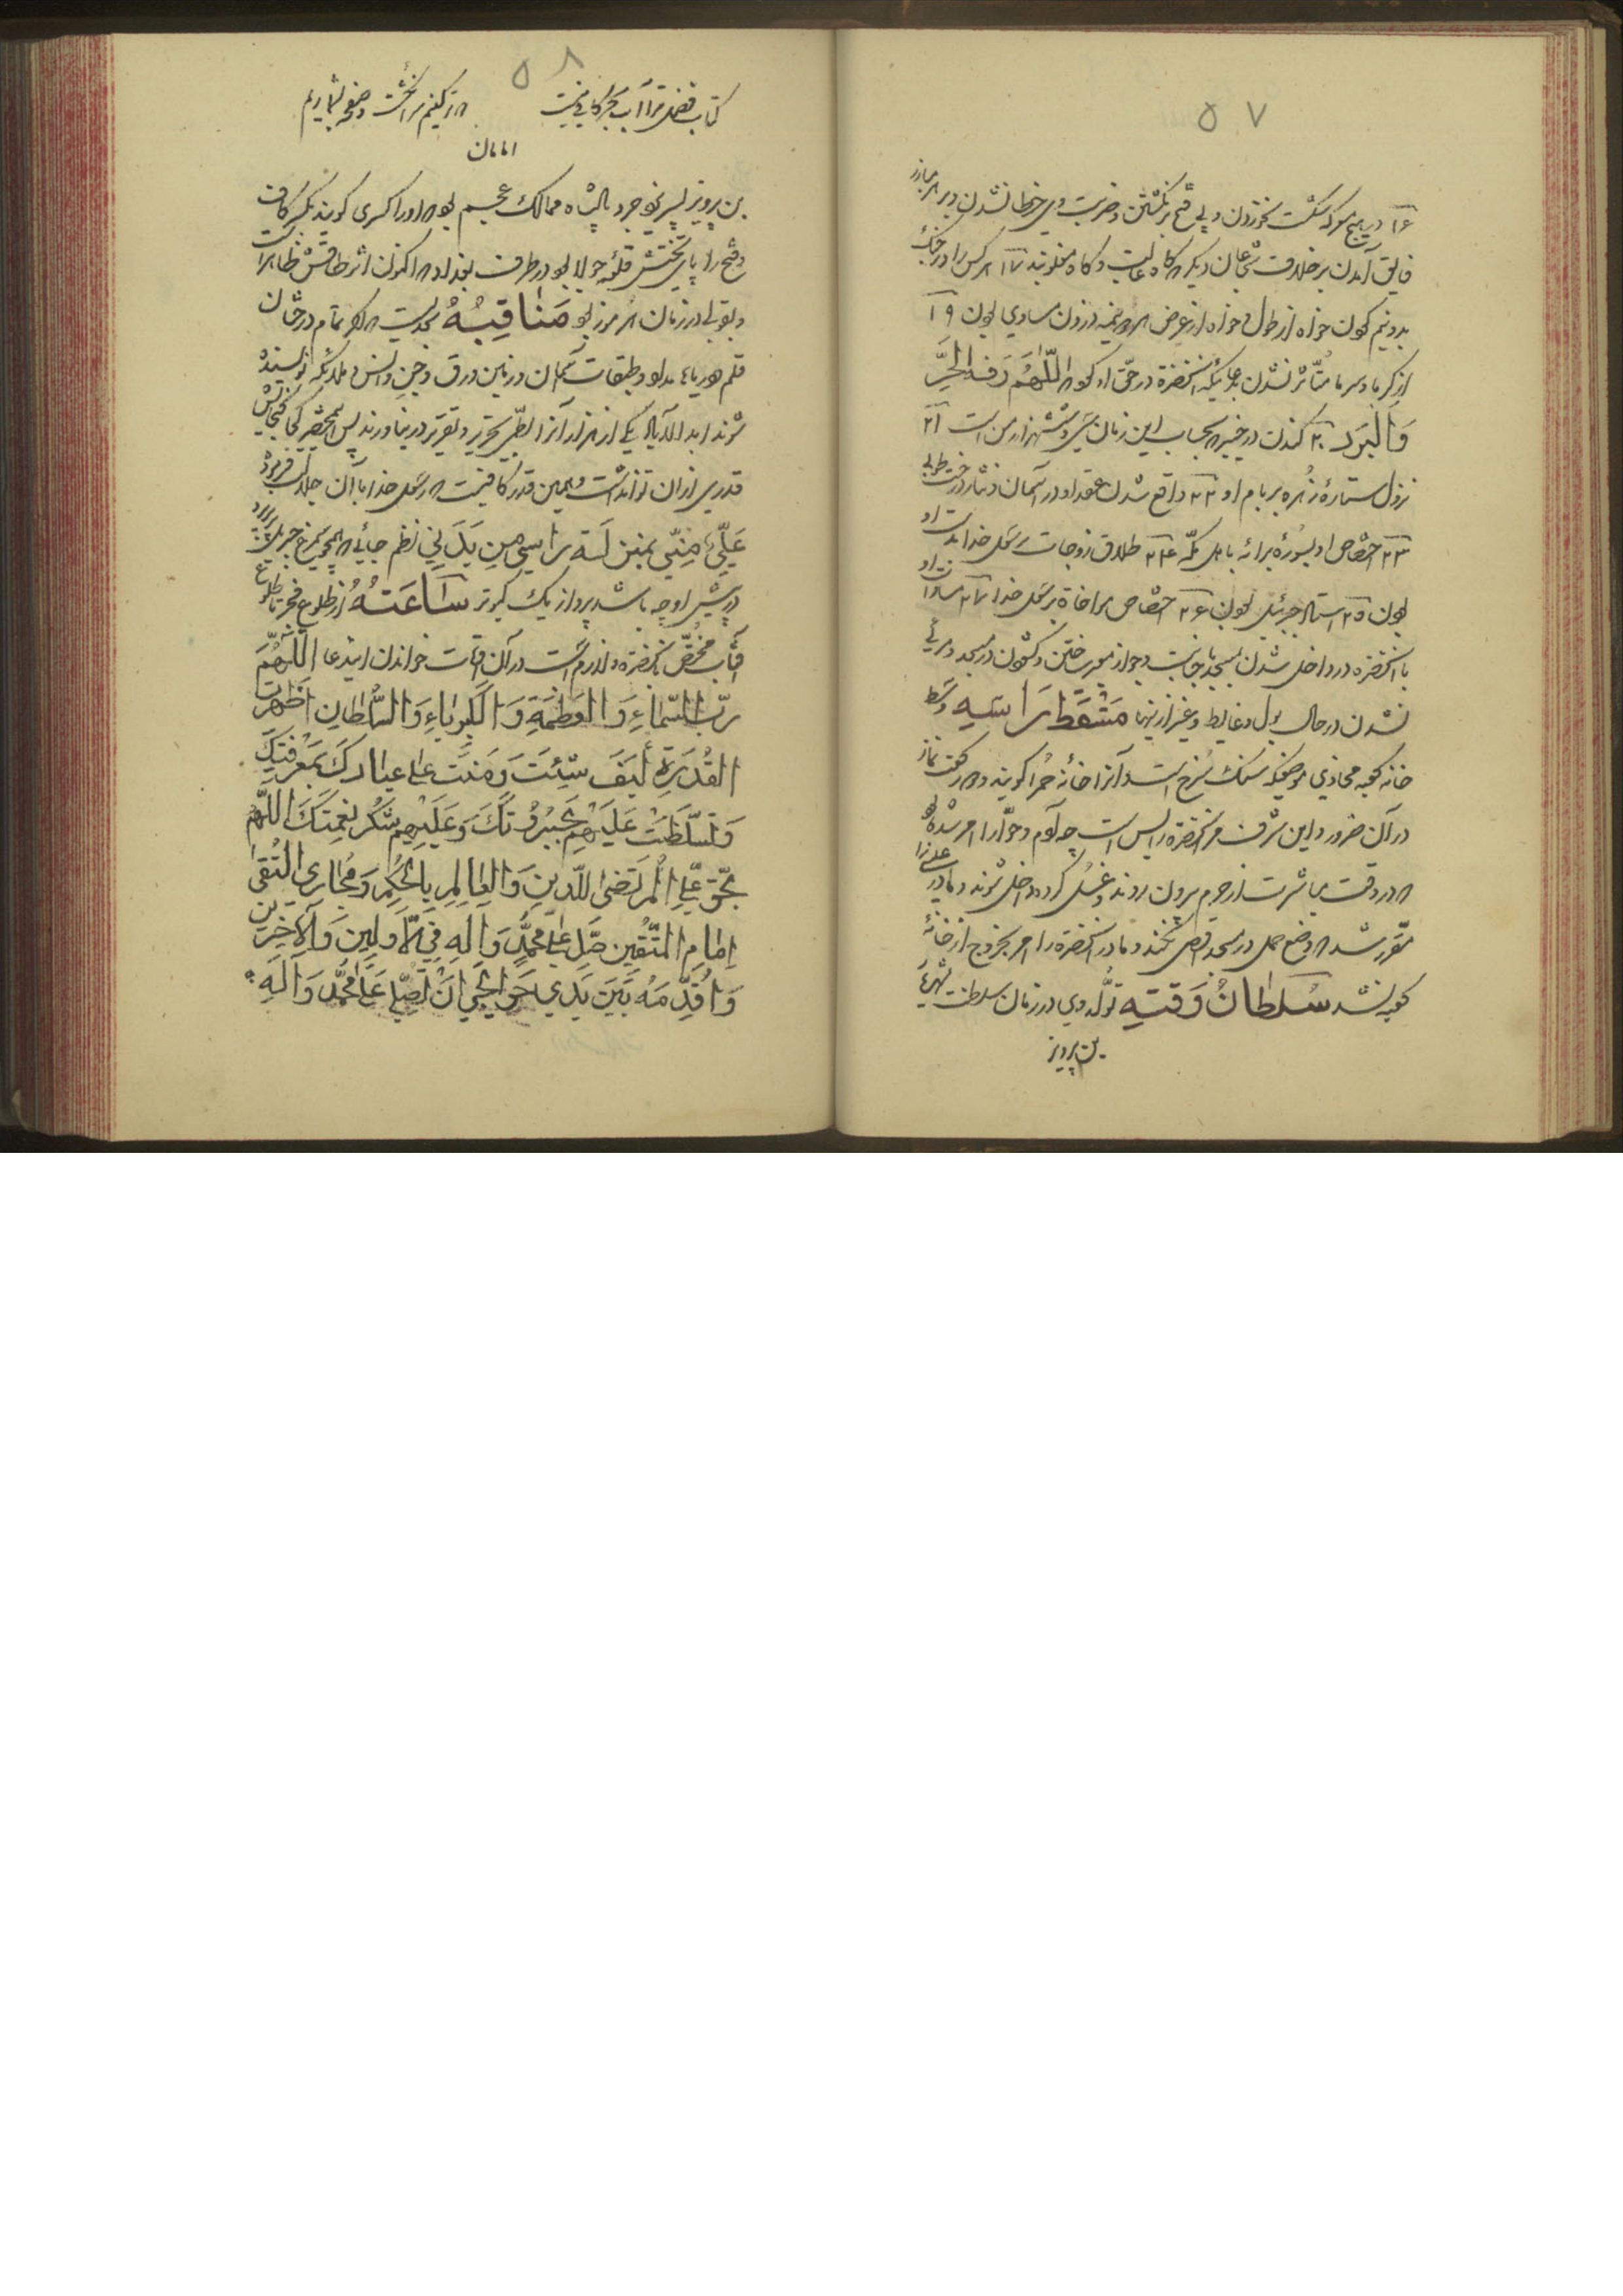 ۵۷
۱۶ در هیچ معرکه شکست نخوردن و بی فتح برنگشتن و ضربت وی خطا نشدن و بر هر مبارز
فایق آمدن برخلاف شجاعان دیگر که گاه غالبست و گاه مغلوبند ۱۷ هر کس را در جنگ
بدونیم کردن خواه از طول و خواه از عرض هر دو نیمه در وزن مساوی بودن ۱۹
از گرما و سرما متأثر نشدن بدعائیکه آنحضرة در حق او کرد که اللّٰهُمَّ قه الحَرَّ
وَالْبَرد ۲۰ کندن در خیبر که بحساب این زمان سی و شش هزار من است ۲۱
نزول ستارهٔ زُهره بر بام او ۲۲ واقع شدن عقد او در آسمان و نثار درخت طوبی
۲۳ اختصاص او بسورهٔ برائه باهل مکّه ۲۴ طلاق زوجات رسول خدا بدست او
بودن ۲۵ استاد جبرئیل بودن ۲۶ اختصاص بمواخاة رسول خدا ۲۷ مساوات او
با آنحضرة در داخل شدن بمسجد با جنابت و جواز
نشدن در حال بول و غایط و غیر از اینها مَسْقَطُ رَاسِهِ وسط
خانه کعبه محاذی موضعیکه سنگ سُرخ است و آنرا خانهٔ حُمرا گویند و دو رکعت نماز
در آن ضرور و این شرف مر آنحضرة را بس است چه آدم و حوّا را امر شده بود
که در وقت مباشرت از حرم بیرون روند و غسل کرده داخل شوند و مادر عیسی را
مقرر شد که وضع حمل در مسجد اقصی نکند و مادر آنحضرة را امر بخروج از خانهٔ
کعبه نشد سُلطانُ وَقتِهِ تولّد وی در زمان سلطنت شهریار
بن پرویز
۵۸
کتاب فضل ترا آب بحر کافی نیست
که تر کنیم سر انگشت و صفحه بشماریم
بن پرویز پسر یزدجرد پادشاه ممالک عجم بود که او را کسری گویند بکسر کاف
و فتح را پای تختش قلعه جولا بود در طرف بغداد که اکنون اثر طاقش ظاهر است
و بقولی در زمان هرمز بود مَناقِبُهُ بحدیست که اگر تمام درختان
قلم و دریاها مداد و طبقات آسمان و زمین ورق و جن و انس و ملائکه نویسنده
شوند ابد الآباد یکی از هزار آنرا بطریق تحریر و تقریر در نیاورند پس این مختصر کجا گنجایش
قدری از آن تواند داشت و همین قدر کافیست که رسول خدا با آن جلالت فرمود
عَلِيٌّ مِنّي بمَنزلَة رَاسي مِن بَدَني نظم جائیکه همچو سیمرغ جبریل پر بریزد
در پیش اوچه باشد پرواز یک کبوتر سَاعَتُهُ از طلوع فجر تا طلوع
آفتاب مخصّص بآنحضرة و لازم است در آن ساعت خواندن این دعا اللّٰهُمَّ
رَبَّ السَّمٰاءِ وَ الْعَظَمَةِ وَ الکِبرِیاءِ وَ السُّلطانِ اَظْهَرْتَ
القُدْرَةَ کَیفَ شِئتَ وَ مَنَنتَ عَلی عِبادِكَ بِمَعْرِفَتِكَ
وَ تَسَلَّطْتَ عَلَیْهِم بجَبَرُوتِكَ وَ عَلَّمتَهُم شُکْرَ نِعْمَتِكَ اللّٰهُمَّ
بِحَقِّ عَلِيٍّ المُرتَضیٰ لِلدِّینِ وَ العٰالِمِ بِالحُکْمِ وَ مَجٰارِی التُّقیٰ
اِمٰامِ المُتَّقِینَ صَلِّ عَلیٰ مُحَمَّدٍ وَ اٰلِهِ فِی الأَوَّلِینَ وَ الآخِرِینَ
وَ اُقَدِّمُهُ بَیْنَ یَدَيْ حَوٰائِجِي اَنْ تُصَلِّيَ عَلٰى مُحَمَّدٍ وَ اٰلِهِ